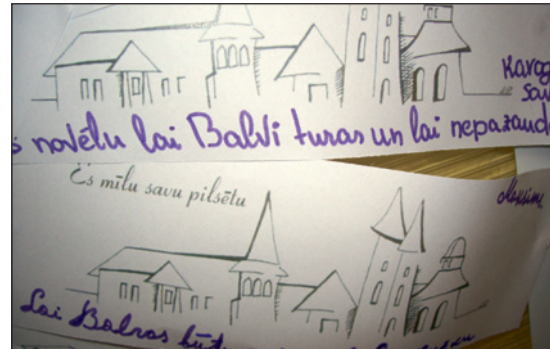 Karog
sav
s novēlu lai Balvi turas un lai nepazaud
Es mīlu savu pilsētu
Lai Balvos